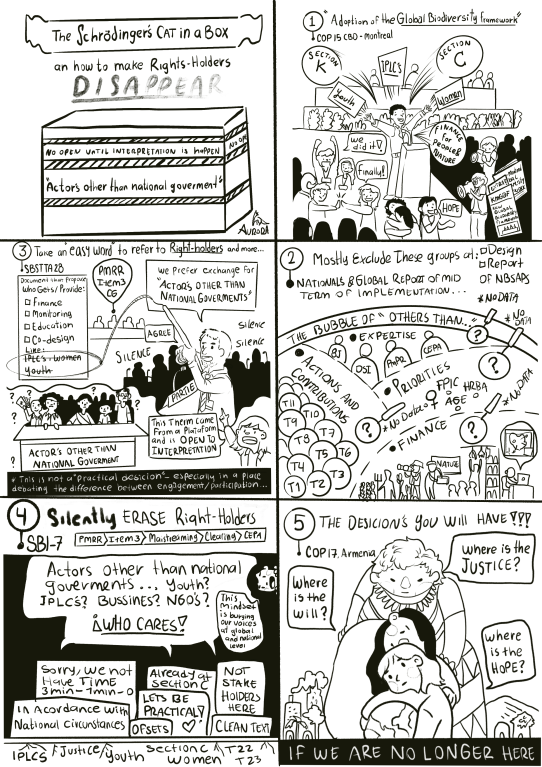 The Schrödinger's CAT in a Box
an how to make Rights-Holders
DISAPPEAR
NO OPEN UNTIL INTERPRETATION IS HAPPEN
NO OPE
"Actor's other than national goverment"
AURORA
1
"Adoption of the Global Biodiversity framework"
COP 15 CBD - Montreal
SECTION
K
IPLC's
SECTION
C
Youth
Women
we
did it!
Finally!
FINANCE
for
PEOPLE &
NATURE
HOPE
3
Take an "easy word" to refer to Right-holders and more...
SBSTTA28
Document that propose
Who Gets/Provide:
Finance
Monitoring
Education
Co-design
Like:
IPLC's + women
Youth
PMRR
Item3
CG
we Prefer exchange for
"ACTOR'S OTHER THAN
NATIONAL GOVERMENTS"
AGREE
SILENCE
silence
silence
PARTIE
? ? ? ? ?
ACTOR'S OTHER THAN
NATIONAL GOVERMENT
This Therm came
From a Plataform
and is OPEN TO
INTERPRETATION
* This is not a "practical desicion" - especially in a place
debating the difference between engagement/participation...
2
Mostly Exclude These groups at:
Design
Report
OF NBSAPS
NATIONALS & GLOBAL REPORT OF MID
TERM OF IMPLEMENTATION...
*NO DATA
THE BUBBLE OF "OTHERS THAN..."
? NO DATA
EXPERTISE
BI
DSI
PMPR
CEPA
?
ACTIONS AND
CONTRIBUTIONS
PRIORITIES
FPIC HRBA
AGE
*No Data
? *No Data
?
FINANCE
T11
T10
T9
T8
T7
T6
T5
T4
T3
T2
T1
NATURE
4
Silently ERASE Right-Holders
SBI-7
PMRR > Item3 > Maistreaming > Clearing > CEPA
Actors other than national
goverments... Youth?
IPLCs? BUSSINES? NGO'S?
¡WHO CARES!
This
Mindset
is burying
our voices
at global
and national
level
Sorry, we not
Have Time
3min-1min-0
Already at
section C
NOT
STAKE
HOLDERS
HERE
In Acordance with
National Circunstances
LETS BE
PRACTICAL!
OFSETS
CLEAN TEXT
IPLCs Justice/Youth Section C Women T22 T23
5
THE DESICION'S YOU WILL HAVE???
COP17, Armenia
Where
is the
will?
where is the
JUSTICE?
where
is the
HOPE?
IF WE ARE NO LONGER HERE